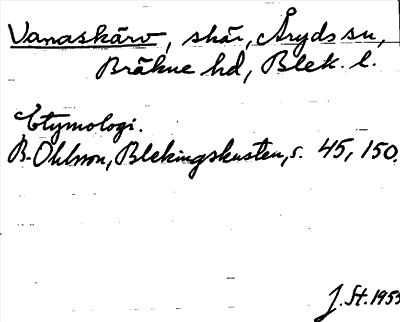 Vanaskärv, skär, Åryds sn,
Bräkne hd, Blek. l.
Etymologi.
B. Ohlsson, Blekingskusten, s. 45, 150.
J. St. 1955